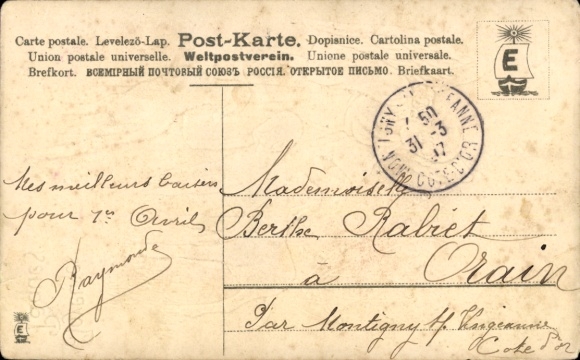 Post-Karte.
Carte postale. Levelező-Lap. Dopisnice. Cartolina postale.
Union postale universelle. Weltpostverein. Unione postale universale.
Brefkort. ВСЕМІРНЫЙ ПОЧТОВЫЙ СОЮЗЪ РОССІЯ. ОТКРЫТОЕ ПИСЬМО. Briefkaart.
E
7 50
31 -3
07
COTE-D'OR
Mes meilleurs baisers
pour 1er Avril
Raymonde
Mademoiselle
Berthe Rabiet
à Orain
Par Montigny s/ Vingeanne
Cote d'or
E